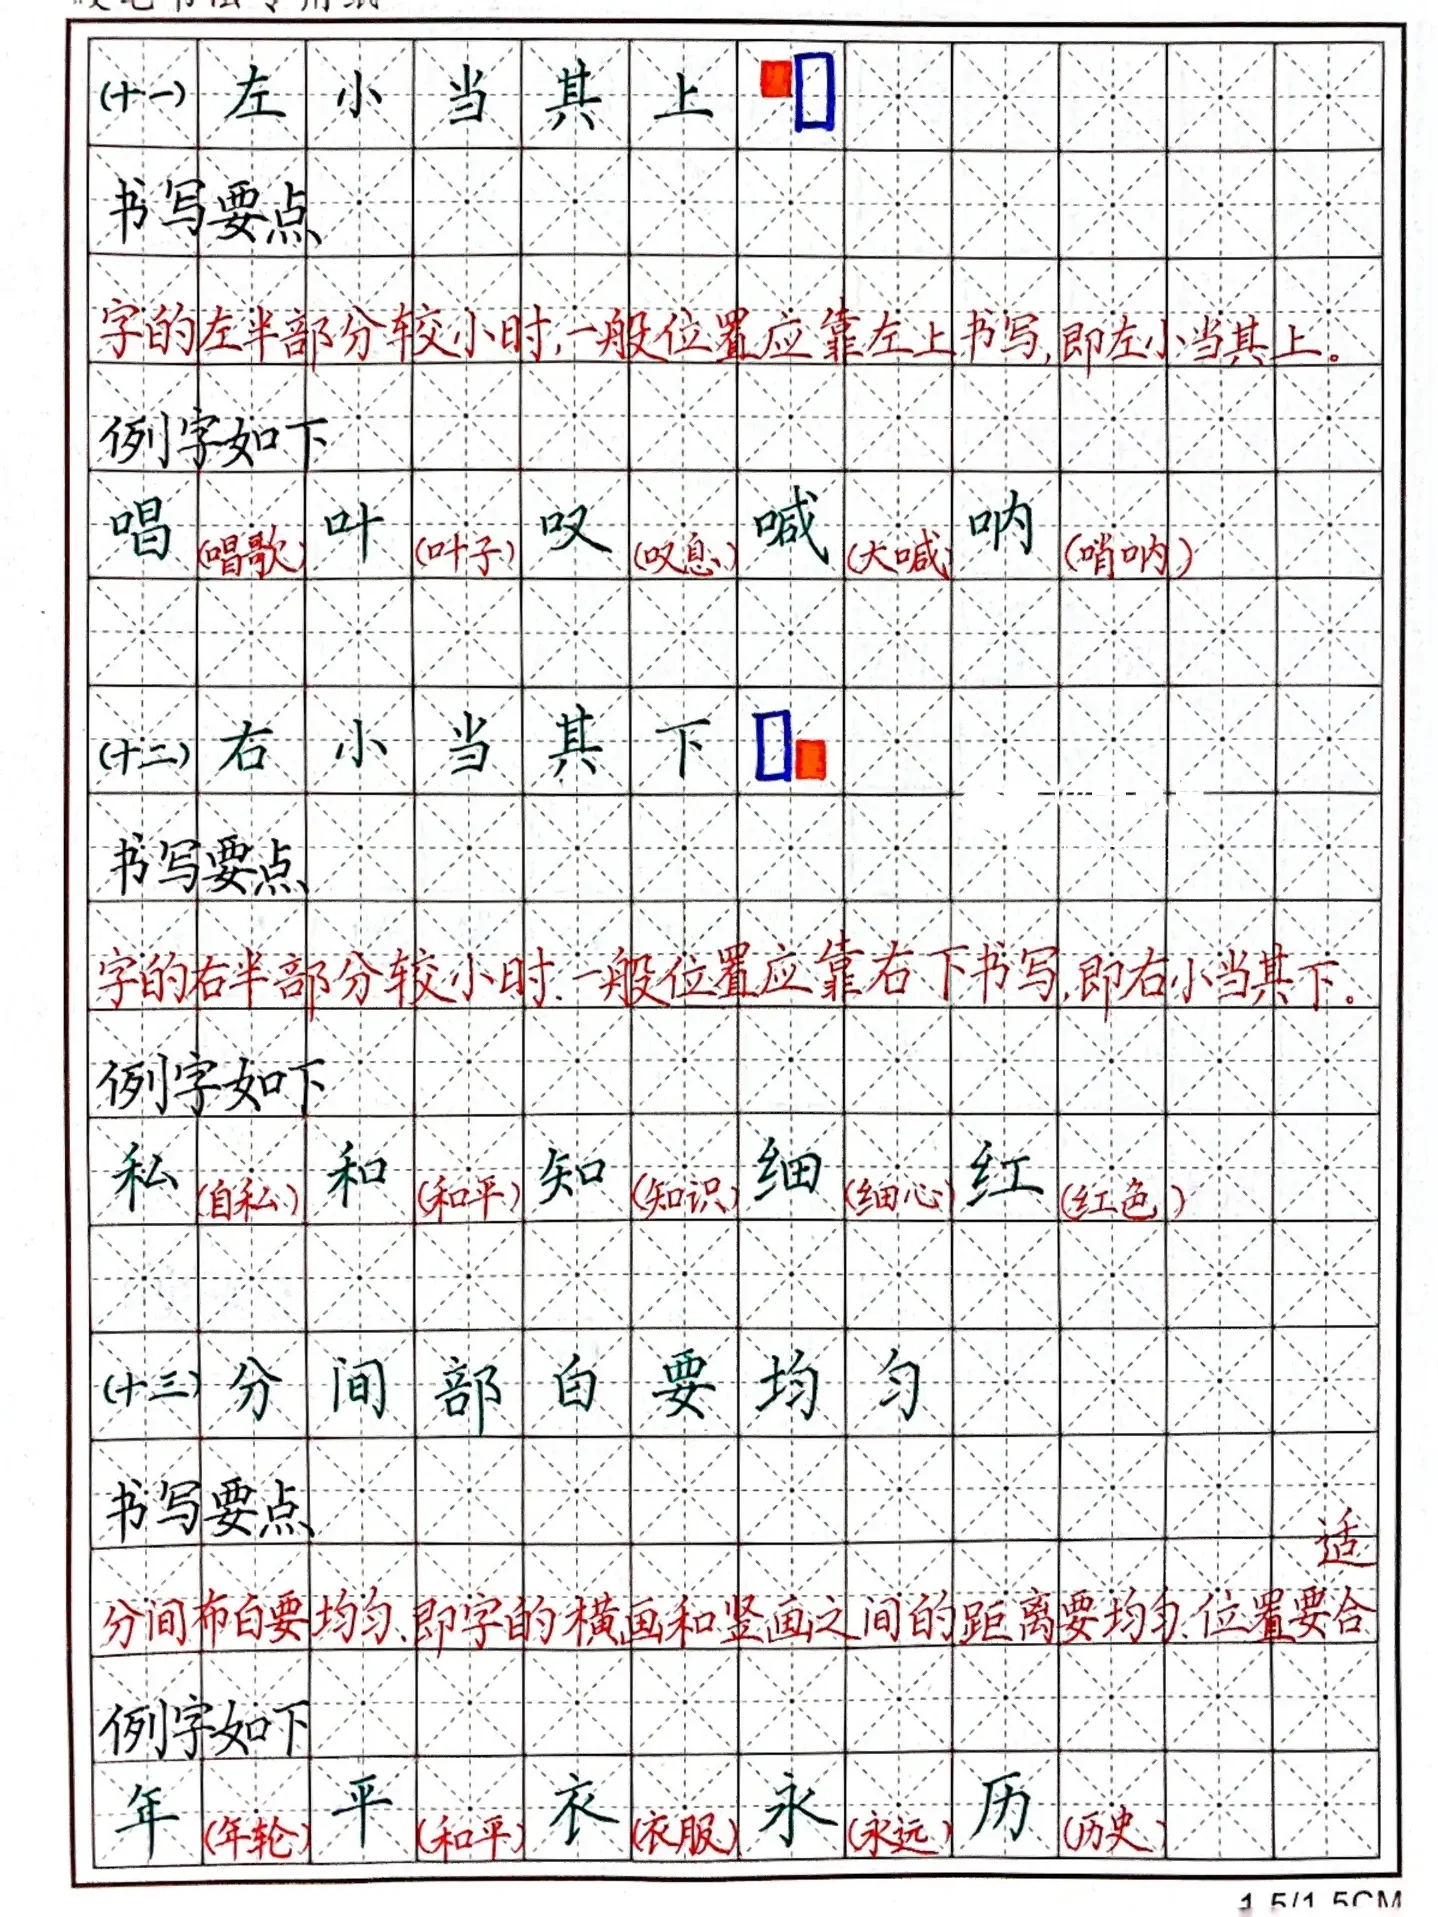 硬笔书法专用纸
(十一)左小当其上
书写要点
字的左半部分较小时,一般位置应靠左上书写,即左小当其上。
例字如下
唱(唱歌)叶(叶子)叹(叹息)喊(大喊)呐(哨呐)
(十二)右小当其下
书写要点
字的右半部分较小时,一般位置应靠右下书写,即右小当其下。
例字如下
私(自私)和(和平)知(知识)细(细心)红(红色)
(十三)分间部白要均匀
书写要点
分间布白要均匀、即字的横画和竖画之间的距离要均匀、位置要合
适
例字如下
年(年轮)平(和平)衣(衣服)永(永远)历(历史)
1.5/1.5CM